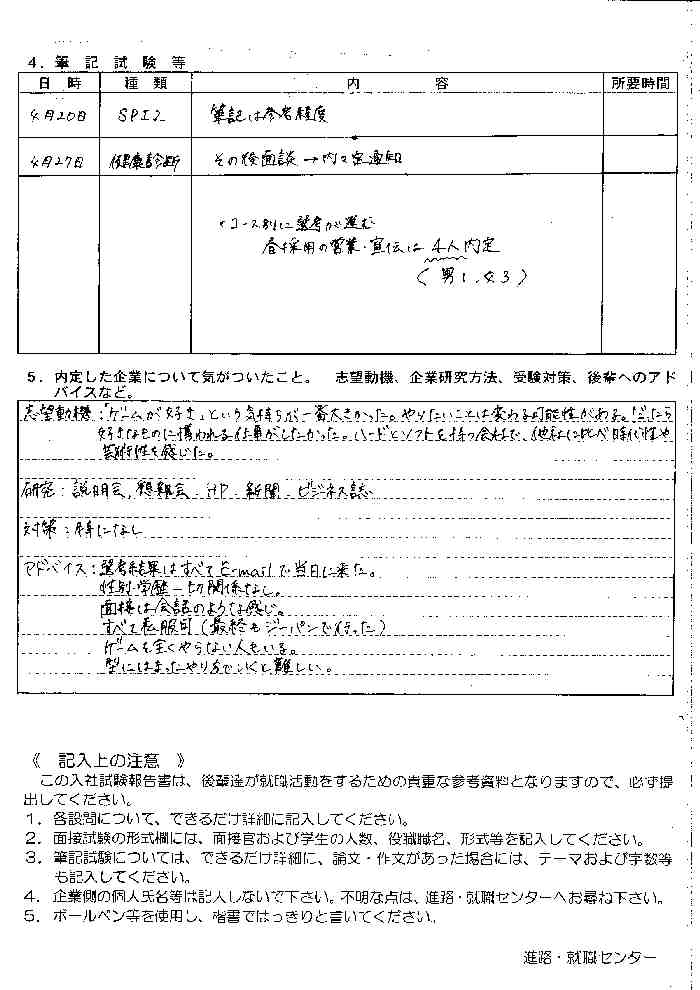 4．筆 記 試 験 等
日 時 種 類 内 容 所要時間
4月20日 SPI2 筆記は参考程度
4月27日 健康診断 その後面談→内々定通知
・コース別に選考が進む
各採用の営業・宣伝は4人内定
(男1,女3)
5．内定した企業について気がついたこと。 志望動機、企業研究方法、受験対策、後輩へのアド
バイスなど。
志望動機：「ゲームが好き」という気持ちが一番大きかった。やりたいことは変わる可能性がある。だったら
好きなものに携われる仕事がしたかった。ハードとソフトを持つ会社で、他社に比べ時代性や
芸術性を感じた。
研究：説明会、懇親会、HP、新聞、ビジネス誌
対策：特になし
アドバイス：選考結果はすべてE-mailで当日に来た。
性別・学歴一切関係なし。
面接は会話のような感じ。
すべて私服可(最終もジーパンで行った)
ゲームを全くやらない人もいる。
型にはまったやり方でいくと難しい。
《 記入上の注意 》
この入社試験報告書は、後輩達が就職活動をするための貴重な参考資料となりますので、必ず提
出してください。
1．各設問について、できるだけ詳細に記入してください。
2．面接試験の形式欄には、面接官および学生の人数、役職職名、形式等を記入してください。
3．筆記試験については、できるだけ詳細に、論文・作文があった場合には、テーマおよび字数等
も記入してください。
4．企業側の個人氏名等は記入しないで下さい。不明な点は、進路・就職センターへお尋ね下さい。
5．ボールペン等を使用し、楷書ではっきりと書いてください。
進路・就職センター